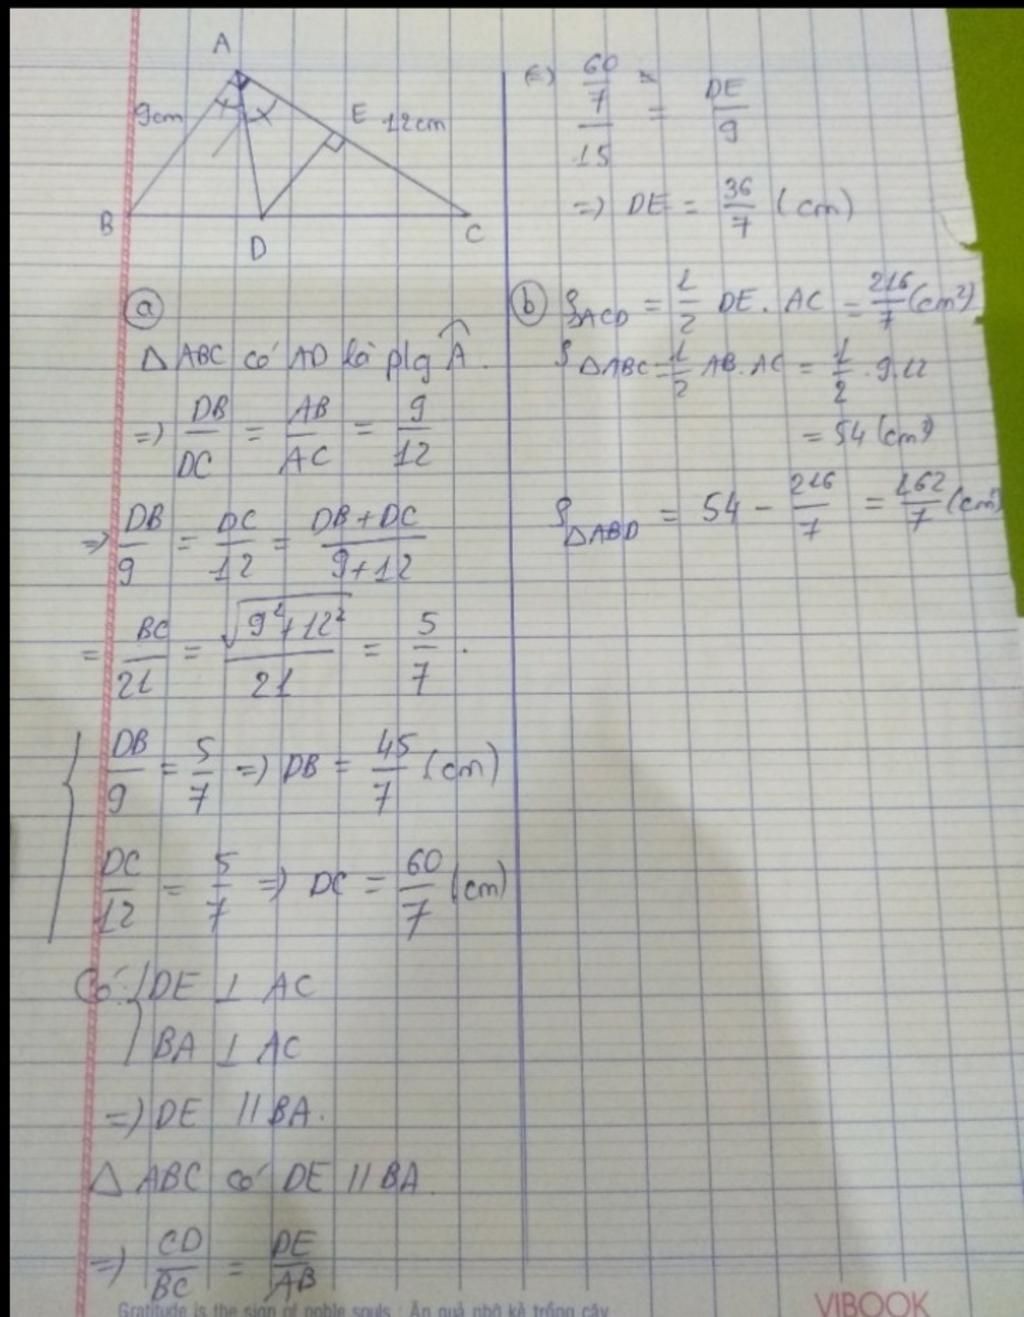 A
9cm
E 12cm
B
D
C
a
Δ ABC có AD là plg Â.
=> DB/DC = AB/AC = 9/12
=> DB/9 = DC/12 = (DB+DC)/(9+12)
= BC/21 = √(9²+12²)/21 = 5/7.
{ DB/9 = 5/7 => DB = 45/7 (cm)
DC/12 = 5/7 => DC = 60/7 (cm)
Có: { DE ⊥ AC
BA ⊥ AC
=> DE // BA.
Δ ABC có DE // BA.
=> CD/BC = DE/AB
(=) (60/7)/15 = DE/9
=> DE = 36/7 (cm)
b S ACD = 1/2 DE. AC = 216/7 (cm²)
S ΔABC = 1/2 AB. AC = 1/2 . 9.12
= 54 (cm²)
S ΔABD = 54 - 216/7 = 162/7 (cm²)
Gratitude is the sign of noble souls : Ăn quả nhớ kẻ trồng cây
VIBOOK